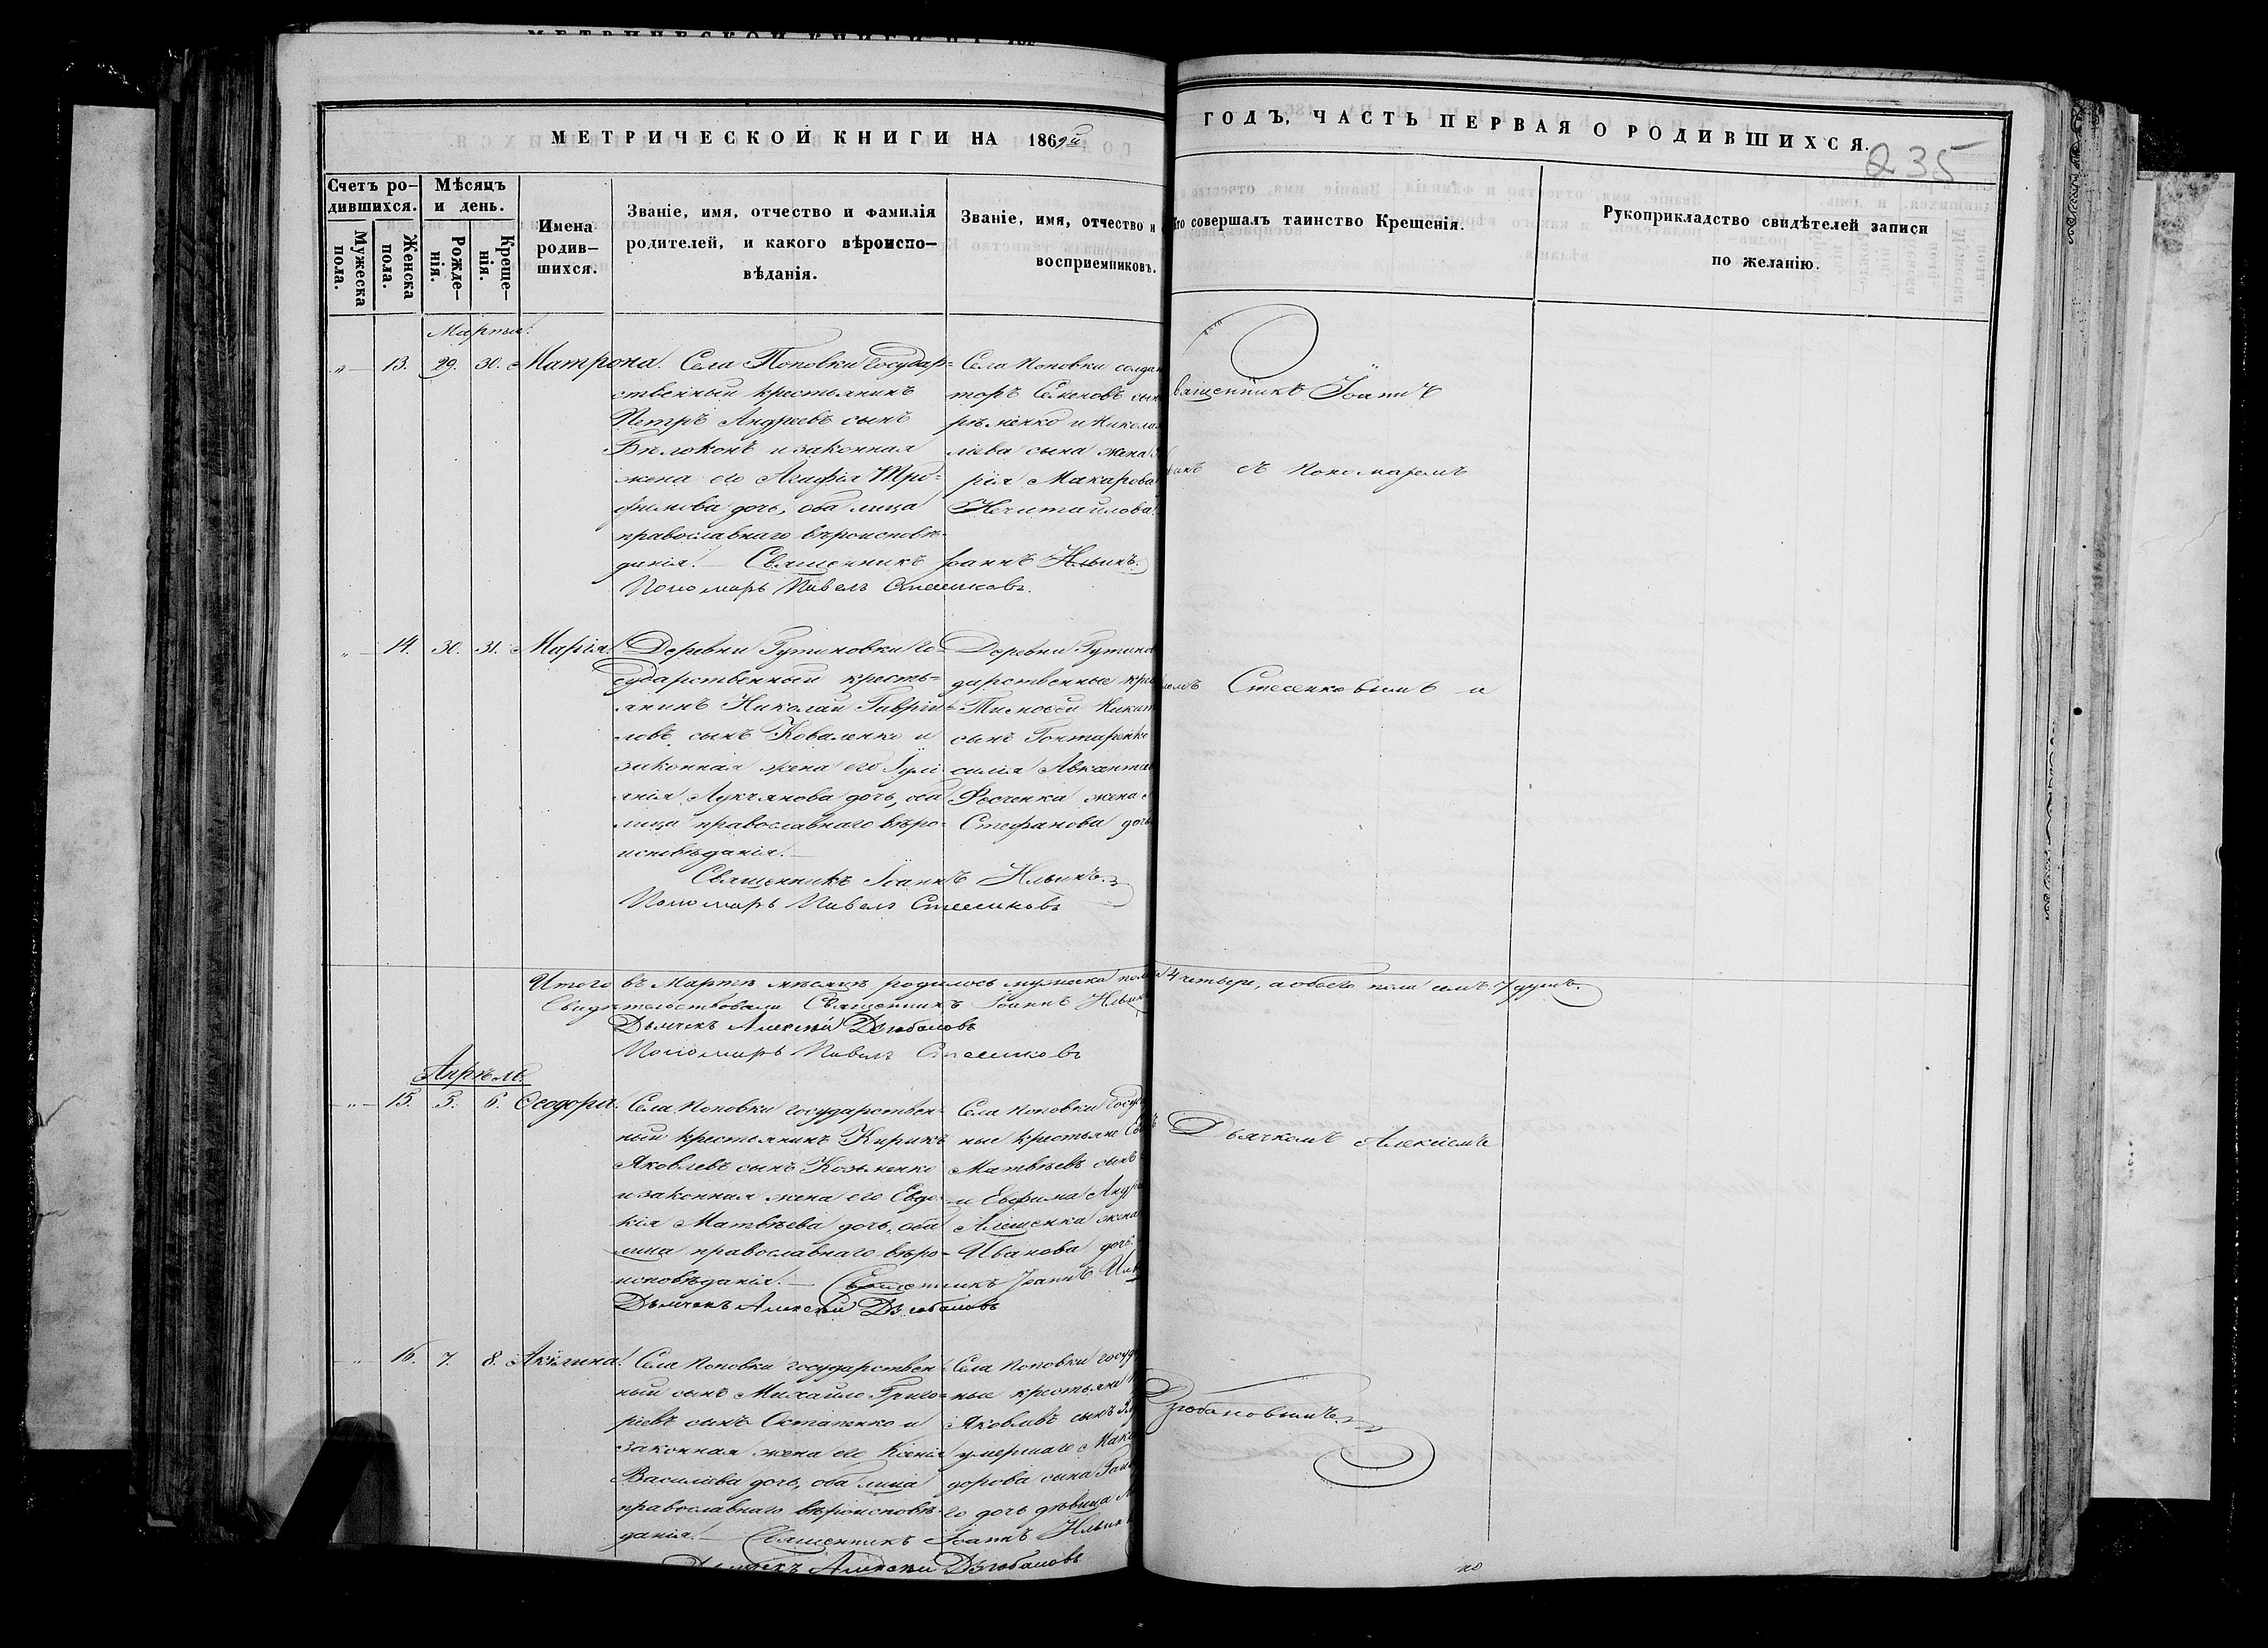 МЕТРИЧЕСКОЙ КНИГИ НА 1869й
ГОДЪ, ЧАСТЬ ПЕРВАЯ О РОДИВШИХСЯ.
235
Счетъ ро-
дившихся.
Мужеска пола.
Женска пола.
Мѣсяцъ
и день.
Рожде-
нія.
Креще-
нія.
Имена
родив-
шихся.
Званіе, имя, отчество и фамилія
родителей, и какого вѣроиспо-
вѣданія.
Званіе, имя, отчество и
воспріемниковъ.
совершалъ таинство Крещенія.
Рукоприкладство свидѣтелей записи
по желанію.
Марта.
„ 13. 29. 30. Матрона.
Села Поповки государ-
ственный крестьянинъ
Петръ Андреевъ сынъ
Бѣлоконь и законная
жена его Агафія Тро-
фимова дочь, оба лица
православнаго вѣроисповѣ-
данія. Священникъ Іоаннъ Ильинъ.
Пономарь Павелъ
Села Поповки
торъ Семеновъ сын
и Никола
лаева сына жена
рія Макарова
Нечитайлова
Іоаннъ
съ Пономаремъ
„ 14. 30. 31. Марія.
Деревни Гутиновки го-
сударственный кресть-
янинъ Николай Гаврги-
ловъ сынъ Коваленко и
законная жена его Іулі-
анія Лукъянова дочь, оба
лица православнаго вѣро-
исповѣданія.
Священникъ Іоаннъ Ильинъ.
Пономарь Павелъ
Деревни Гутинов
дарственные кре
Тимоѳей Никит
сынъ Гонтаренко
силія Авксентіев
Ѳесченка жена
Стефанова дочь
и
Итого въ Мартѣ мѣсяцѣ родилось мужеска пола
4 четыре, а обоего пола семь 7 душъ.
Свидѣтельствовали Священникъ Іоаннъ Ильин
Дьячекъ Алексѣй Дзюбановъ
Пономарь Павелъ
Апрѣль.
„ 15. 5. 6. Ѳеодора.
Села Поповки государствен-
ный крестьянинъ Кирикъ
Яковлевъ сынъ Козьменко
и законная жена его Евдо-
кія Матвѣева дочь, оба
лица православнаго вѣро-
исповѣданія. Священникъ Іоаннъ Иль
Дьячекъ Алексѣй Дзюбановъ
Села Поповки госуд
ные крестьяне
Матвѣевъ сынъ
и Евфима Андре
жена
Иванова дочь.
Дьячкомъ Алексіемъ
„ 16. 7. 8. Акилина.
Села Поповки государствен-
ный сынъ Михайло Григо-
ріевъ сынъ Остапенко и
законная жена его Ксенія
Василіева дочь, оба лица
православнаго вѣроисповѣ-
данія. Священникъ Іоаннъ Ильин
Дьячекъ Алексѣй Дзюбановъ
Села Поповки госуд
ные крестьяне
Яковлевъ сынъ
умершаго Мака
дорова сына
го дочь дѣвица
Дзюбановымъ.